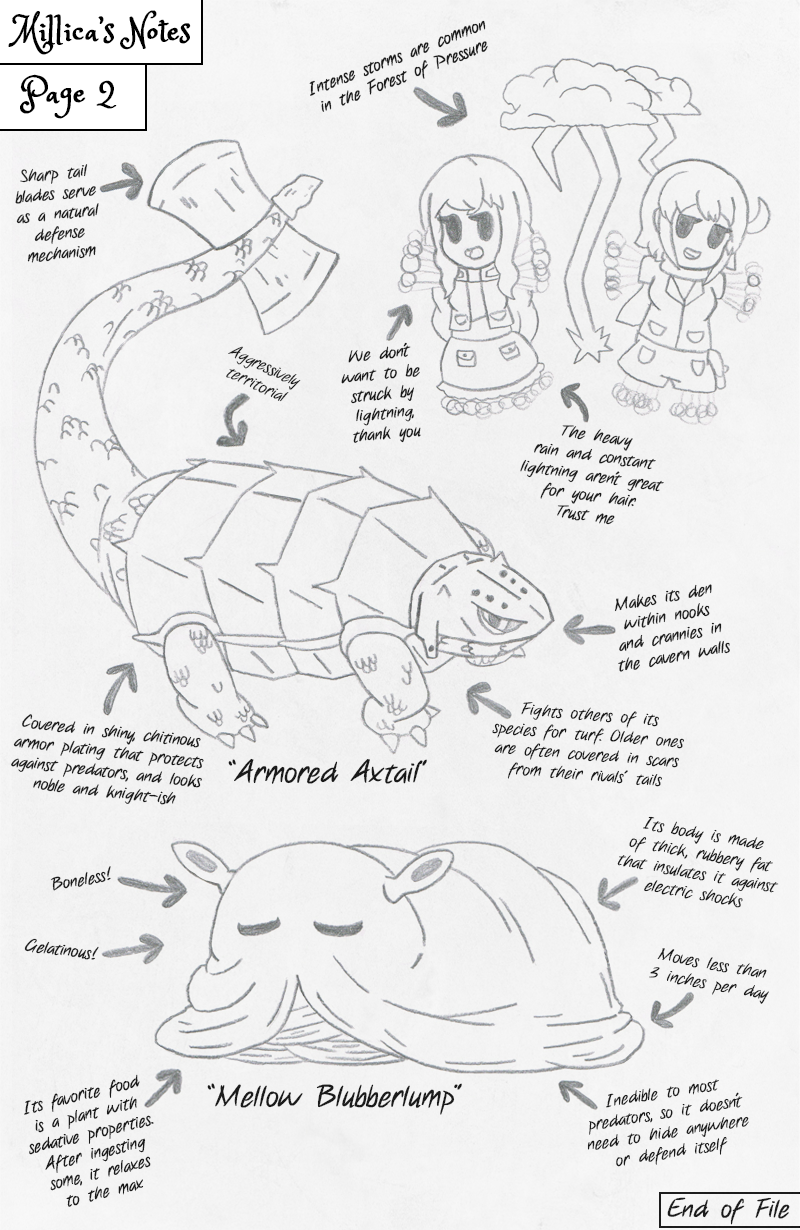 Millica's Notes
Page 2
Intense storms are common
in the Forest of Pressure
Sharp tail
blades serve
as a natural
defense
mechanism
We don't
want to be
struck by
lightning,
thank you
Aggressively
territorial
The heavy
rain and constant
lightning aren't great
for your hair.
Trust me
Makes its den
within nooks
and crannies in
the cavern walls
Fights others of its
species for turf. Older ones
are often covered in scars
from their rivals' tails
Covered in shiny, chitinous
armor plating that protects
against predators, and looks
noble and knight-ish
"Armored Axtail"
Its body is made
of thick, rubbery fat
that insulates it against
electric shocks
Boneless!
Gelatinous!
Moves less than
3 inches per day
Its favorite food
is a plant with
sedative properties.
After ingesting
some, it relaxes
to the max
"Mellow Blubberlump"
Inedible to most
predators, so it doesn't
need to hide anywhere
or defend itself
End of File